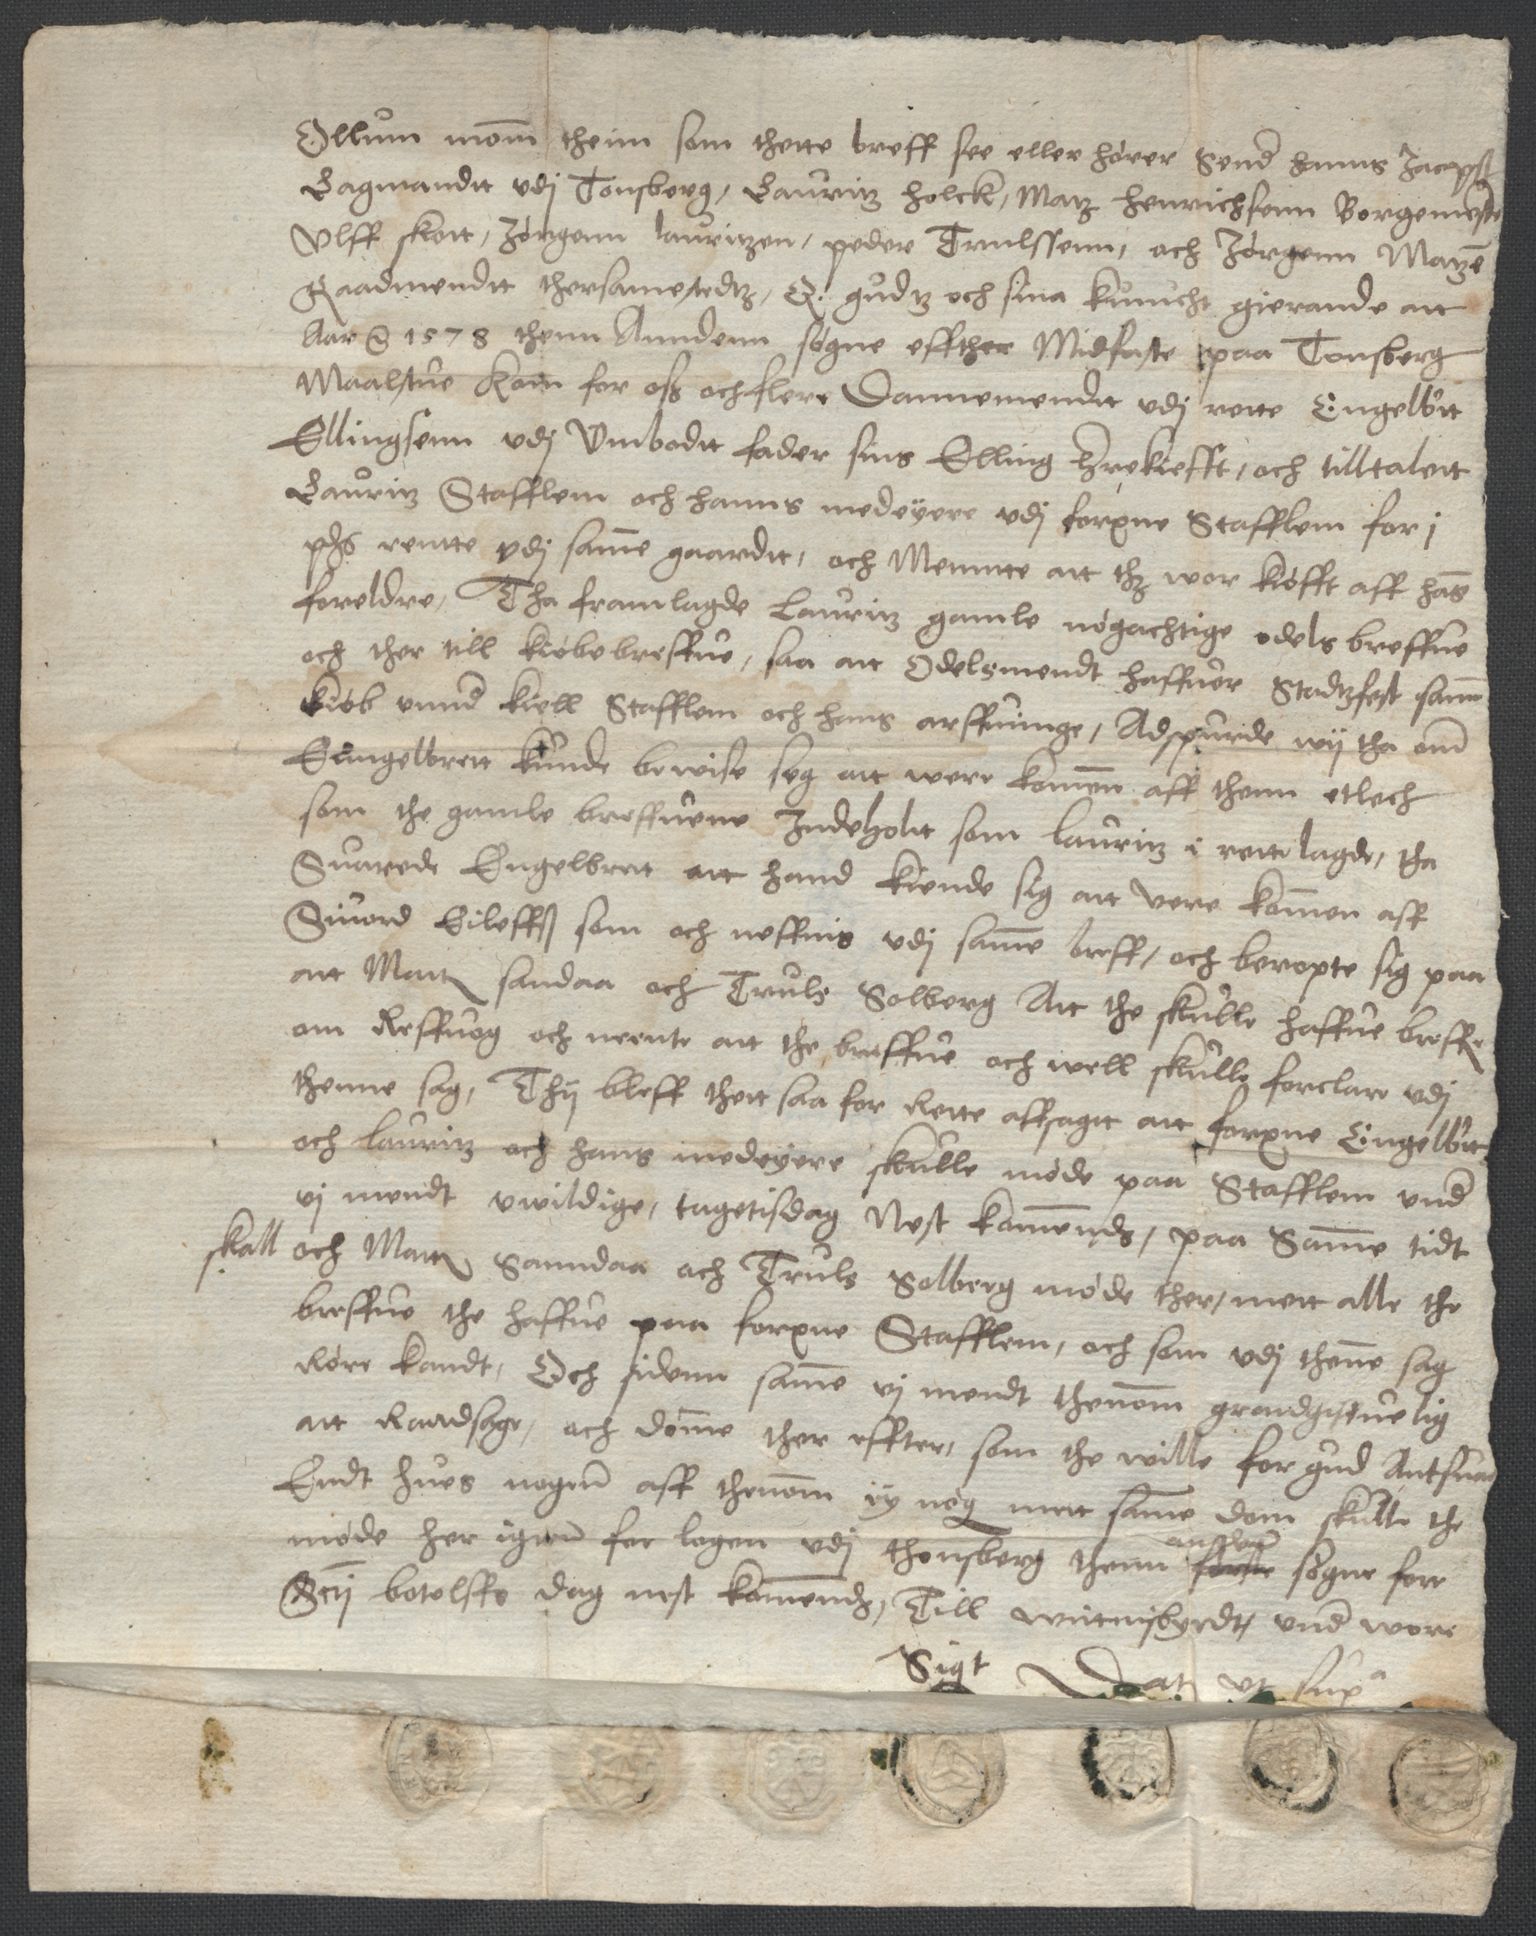 Ollum mom̄ theim som thette breff see eller hører Send hanns Jacopsß
Lagmandtt vdj Tonsberg, Lauritz holck, Matz Henrichsenn Borgemeste
Vlff skott, Jørgenn lauritzen, peder Trulssenn, och Jørgenn Matzē
Raadmendtt thersamestedtz, Q. gudtz och sina kunucht gierande att
Aar 1578 thenn Anndenn søgne effther Midfaste paa Tonsberg
Maalstue kom for oss och flere Dannemendtt vdj rette Engelbtt
Ellingsenn vdj Vmbodtt fader sins Elling Hrekiefft, och tilltalett
Lauritz Stafflem och hanns medeyere vdj forxne Stafflem for j
pds rentte vdj samme gaardtt, och Menntte att thz wor kiøfft aff hās
foreldre, Tha framlagde Lauritz gamle nøgachtige odels breffue
och ther till kiøbebreffue, saa att Odelsmendt haffuer Stadtfest samme
kiøb unnd kiell Stafflem och hans arffuinge, Adspurde wij tha om
Engelbrett kunde bewise seg att were kommen aff thenn etlech
som the gamle breffuene Indeholtt som lauritz i rette lagde, tha
Suarede Engelbrett att hand kiende sig att vere kommen aff
Siuord Eileffß som och neffnis vdj samme breff, och beropte sig paa
att Matt sandaa och Truls Solberg Att the skulle haffue breffe
om Reffuog och mente att the breffue och well skulle forclare vdj
thenne sag, Thij bleff thett saa for Rette affsagtt att forxne Engelbtt
och lauritz och hans medeyere skulle møde paa Stafflem vnd
vj mendt vwildige, tagetisdag Nest komends, paa Samme tidt
skall och Matt Sanndaa och Truls Solberg møde ther, mett alle the
breffue the haffue paa forxne Stafflem, och som vdj thenne sag
Røre kandt, Och sidenn samme vj mendt thennom grandgiffuelig
att Randsage, och dømme ther effter, som the wille for gud Antsuare
Endt hues nogenn aff thennom ey nøg mett samme dom skulle the
møde her igenn for logen vdj thonsberg thenn første annden søgne fore
Sctj botolffs dag nest komends, Till witnisbyrdt vnd wore
Sigt Dat vt supa